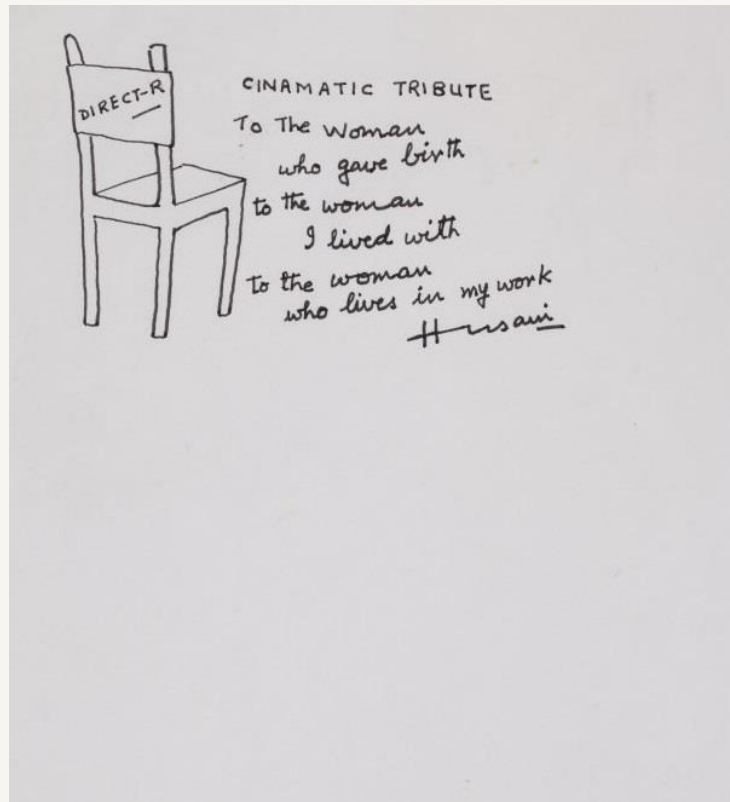 DIRECT-R
CINAMATIC TRIBUTE
To The Woman
who gave birth
to the woman
I lived with
To the woman
who lives in my work
Husain